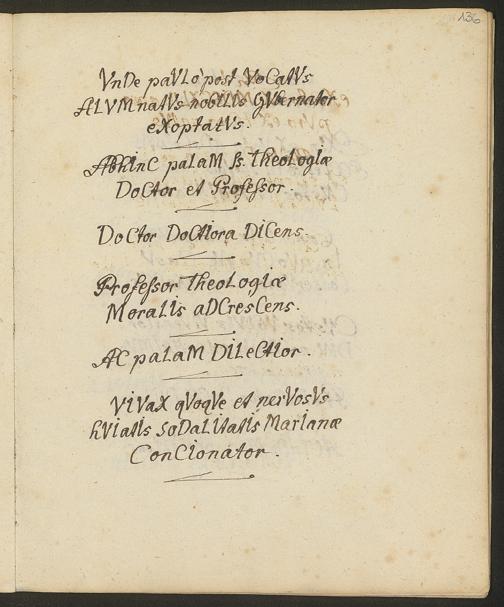 136
VnDe paVLò post VoCatVs
ALVMnatVs nobILIs GVbernator
eXoptatVs.
AbhInC paLaM ss. theoLogIæ
DoCtor et Professor.
DoCtor DoCtIora DICens.
Professor theoLogIæ
MoraLIs aDCresCens.
AC paLaM DILeCtIor.
VIVaX qVoqVe et nerVosVs
hVIatIs soDaLItatIs MarIanæ
ConCIonator.